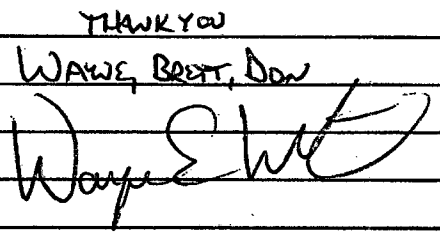 THANK YOU
WAYNE, BRETT, DON
Wayne E